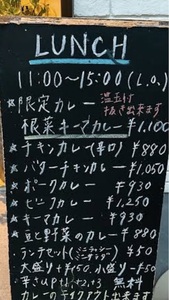 LUNCH
11:00～15:00 (L.o.)
★限定カレー 温玉付 抜き出来ます
根菜キーマカレー ¥1,100
★チキンカレー(辛口) ¥880
★バターチキンカレー ¥1,050
★ポークカレー ¥930
★ビーフカレー ¥1,250
★キーマカレー ¥930
★豆と野菜のカレー ¥880
ランチセット(ミニラッシー ミニサラダ) ¥50
大盛り+¥150、小盛り-¥50
辛さUP +1 +2 +3 無料
カレーのテイクアウト出来ます